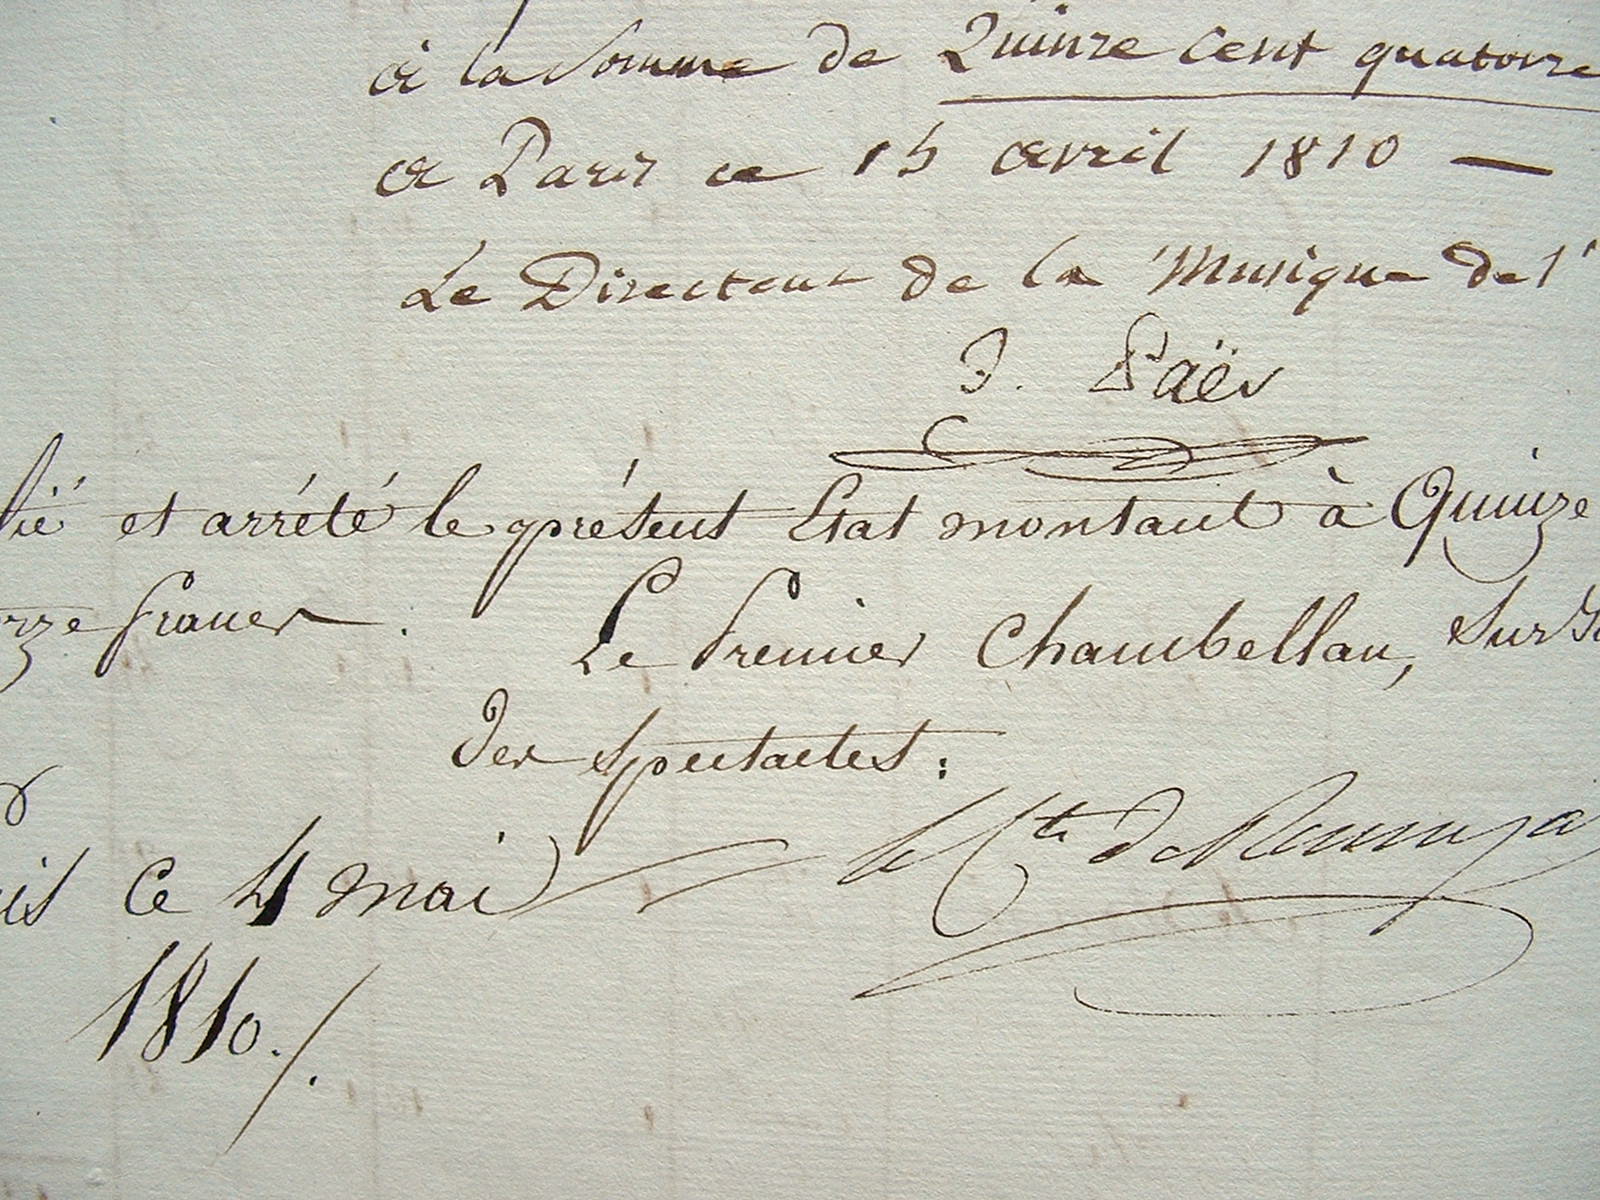 à la somme de Quinze cent quatorze
à Paris ce 15 avril 1810 —
Le Directeur de la Musique de l'
F. Paër
fié et arrêté le présent Etat montant à Quinze
orze francs. Le Premier Chambellan, Sur
des spectacles:
le Cte de Remusa
is Ce 4 mai
1810./.